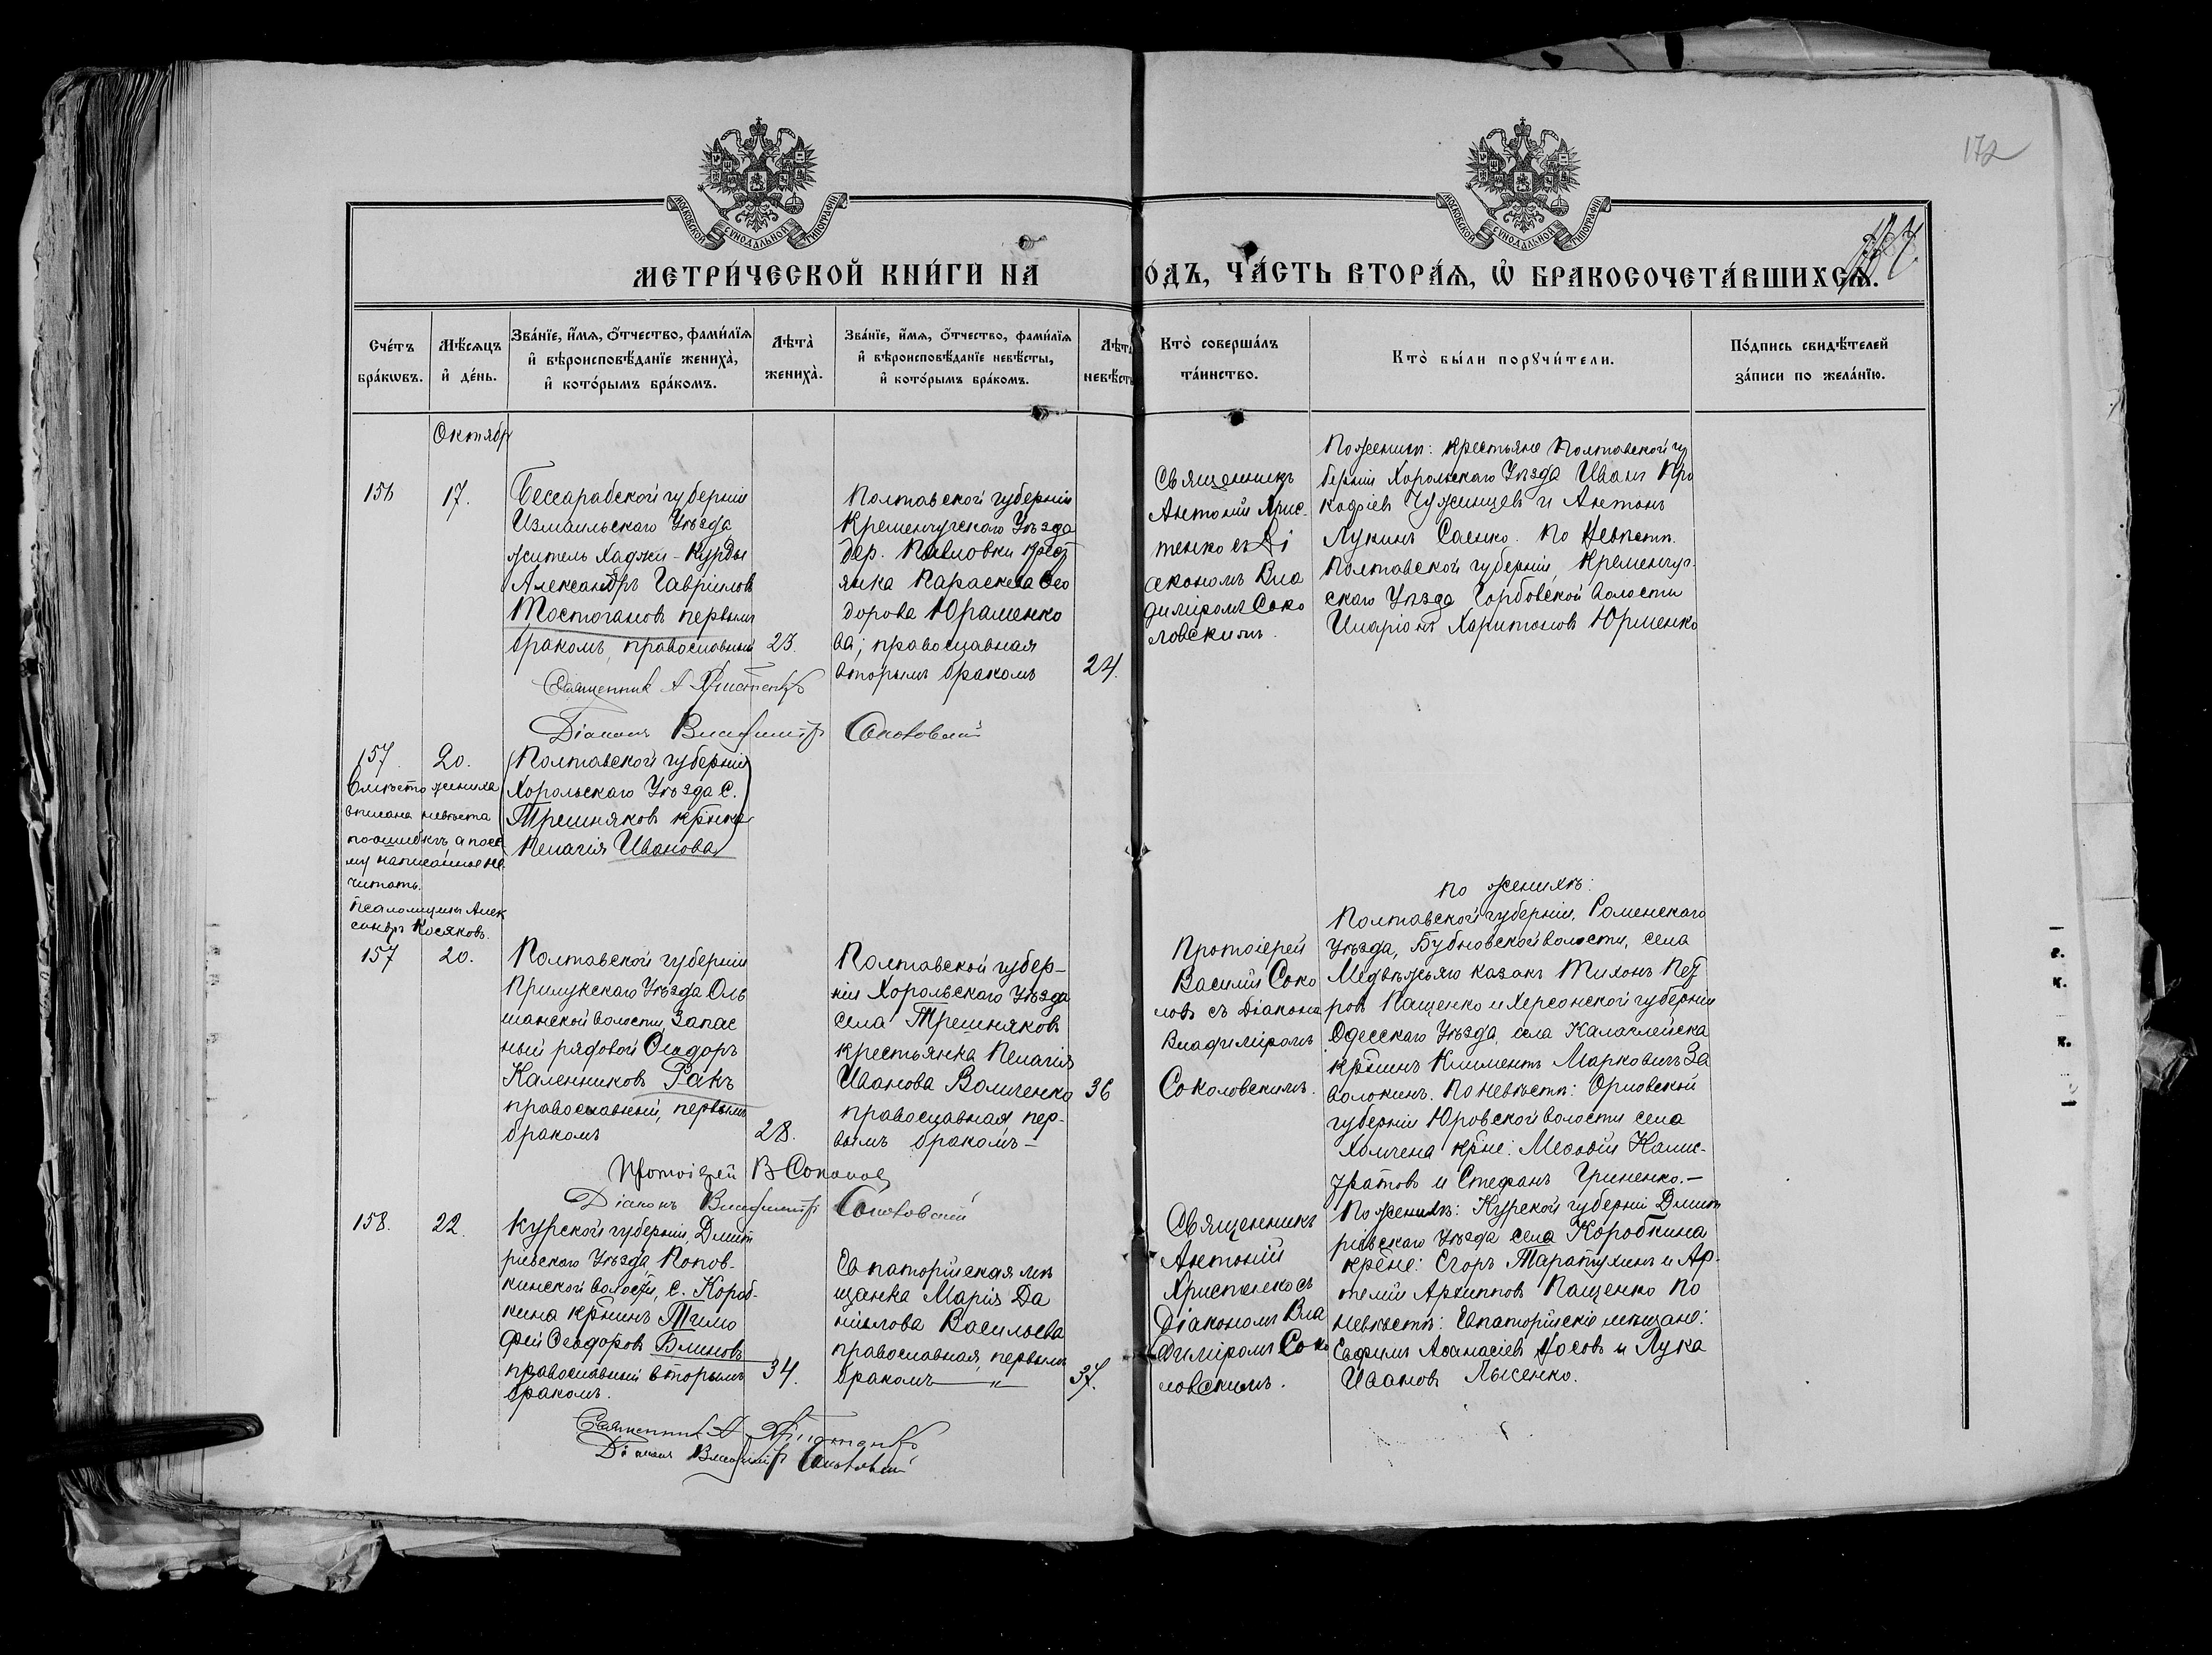 172
МОСКОВСКОЙ СѴНОДАЛЬНОЙ ТИПОГРАФІИ
МОСКОВСКОЙ СѴНОДАЛЬНОЙ ТИПОГРАФІИ
МЕТРИ́ЧЕСКОЙ КНИ́ГИ НА
ГО́ДЪ, ЧА́СТЬ ВТОРА́Ѧ, Ѽ БРАКОСОЧЕТА́ВШИХСѦ.
Сче́тъ бра́кωвъ.
Мѣ́сѧцъ и҆ де́нь.
Зва́нїе, и҆́мѧ, ѻ҆́тчество, фами́лїѧ
и҆ вѣроисповѣ́данїе жениха̀,
и҆ кото́рымъ бра́комъ.
Лѣта̀ жениха̀.
Зва́нїе, и҆́мѧ, ѻ҆́тчество, фами́лїѧ
и҆ вѣроисповѣ́данїе невѣ́сты,
и҆ кото́рымъ бра́комъ.
Лѣта̀ невѣ́сты
Кто̀ соверша́лъ
та́инство.
Кто̀ бы́ли порꙋчи́тели.
По́дпись свидѣ́телей
за́писи по жела́нїю.
Октябр
156
17.
Бессарабской губерніи
Измаильскаго Уѣзда
житель Хаджи-Курды
Александръ Гавриловъ
Мостогановъ первымъ
бракомъ, православный
23.
Полтавской губерніи
Кременчугскаго Уѣзда
дер. Павловки крест
янка Параскева Ѳео
дорова Юраменко
ва; православная
вторымъ бракомъ
24.
Священникъ
Антоній Хрис-
тенко съ Ді
акономъ Вла
диміромъ Соко
ловскимъ.
По женихѣ: крестьяне Полтавской гу
берніи Хорольскаго Уѣзда Иванъ Про
кофіевъ Чужинцевъ и Антонъ
Лукинъ Саенко. По Невѣстѣ.
Полтавской губерніи, Кременчуг-
скаго Уѣзда Горбовской волости
Иларіонъ Харитоновъ Юрменко
Священник А Христенко
Діаконъ Владиміръ Соколовскій
157.
20.
Полтавской губерніи
Хорольскаго Уѣзда С.
Трешняковъ крѣнка
Пелагія Иванова
Вмѣсто жениха
вписана невѣста
по ошибкѣ, а посе
му написанное не
читать.
Псаломщикъ Алек
сандръ Косяковъ.
157
20.
Полтавской губерніи
Прилукскаго Уѣзда Оль
шанской волости, Запас
ный рядовой Ѳеодоръ
Каленниковъ Ракъ
православный, первымъ
бракомъ
28.
Полтавской губер-
ніи Хорольскаго Уѣзда
села Трешняковъ
крестьянка Пелагія
Иванова Вомченко
православная, пер-
вымъ бракомъ—
36
Протоіерей
Василій Соко
ловъ съ Діакона
Владиміромъ
Соколовскимъ.
по женихѣ:
Полтавской губерніи, Роменскаго
Уѣзда, Бубновской волости, села
Медвѣжьяго казакъ Тихонъ Пет
ровъ Пащенко и Херсонской губерніи
Одесскаго Уѣзда, села Калаглейска
крѣнинъ Климентъ Марковичъ За
волокинъ. По невѣстѣ: Орловской
губерніи Юровской волости села
Холмена крѣне: Меѳодій Калис-
тратовъ и Стефанъ Гриненко.—
Протоіерей В Соколовъ
Діаконъ Владиміръ Соколовскій
158.
22.
Курской губерніи, Дмит
ріевскаго Уѣзда, Попов-
кинской волости, С. Короб-
кина крѣнинъ Тимо
ѳей Ѳеодоровъ Блиновъ
православный вторымъ
бракомъ.
34.
Евпаторійская мѣ
щанка Марія Да
ніилова Васильева
православная, первымъ
бракомъ — „ —
37.
Священникъ
Антоній
Христенко съ
Діакономъ Вла
диміромъ Соко
ловскимъ.
По женихѣ: Курской губерніи Дмит
ріевскаго Уѣзда села Коробкина
крѣне: Егоръ Таратухинъ и Ар-
темій Архиповъ Пащенко По
невѣстѣ: Евпаторійскіе мѣщане:
Евфимъ Аѳанасіевъ Носовъ и Лука
Ивановъ Лысенко.
Священник А Христенко
Діаконъ Владиміръ Соколовскій